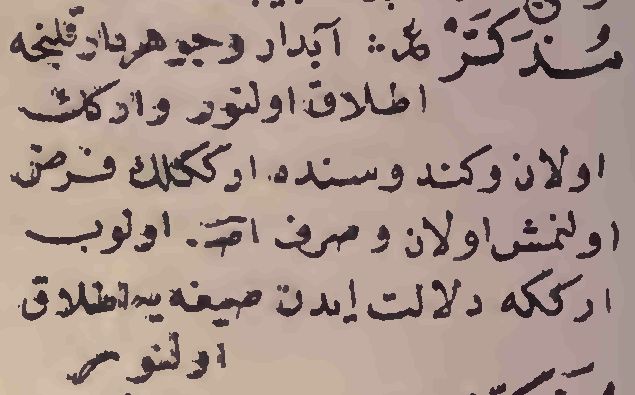 مُذَكَّرْ ع :: آبدار وجوهردار قلیجه
اطلاق اولنور وارکك
اولان وکندوسنده ارککلك فرض
اولنمش اولان و صرف اولوب
ارککه دلالت ایدن صیغه یه اطلاق
اولنور